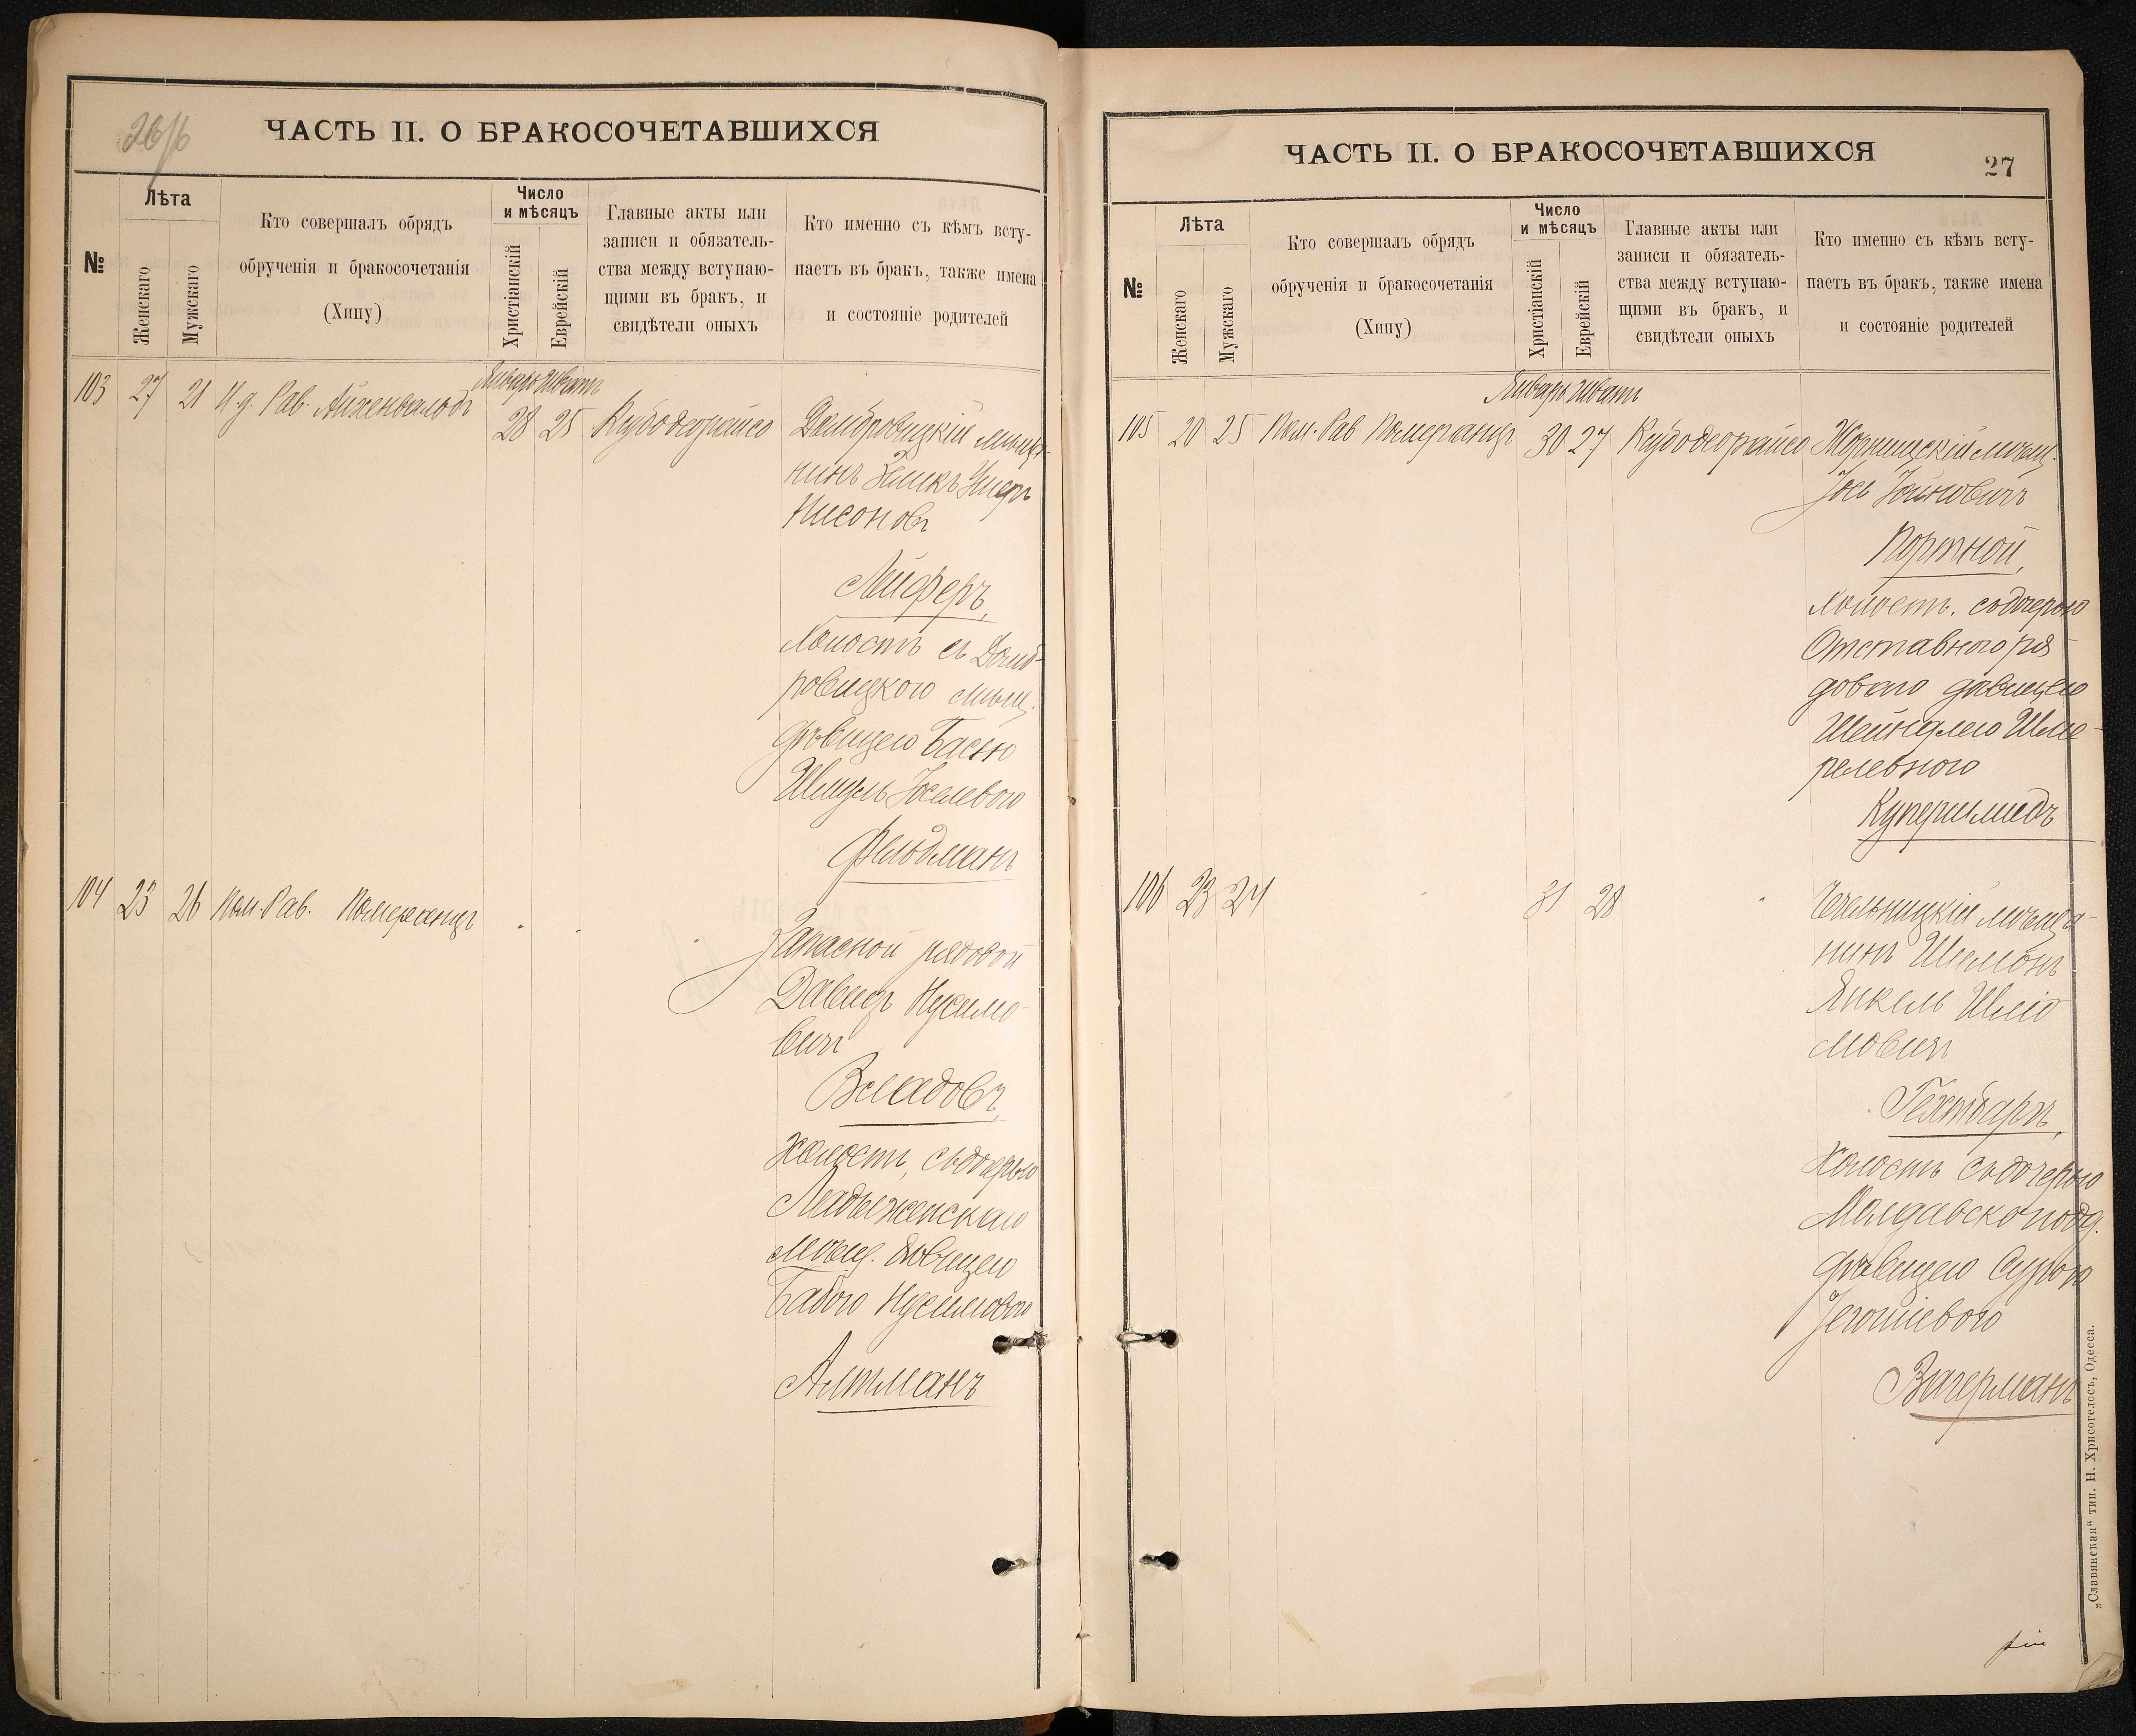 ЧАСТЬ II. О БРАКОСОЧЕТАВШИХСЯ
№
Лѣта
Женскаго
Мужскаго
Кто совершалъ обрядъ
обрученія и бракосочетанія
(Хипу)
Число
и мѣсяцъ
Христіанскій
Еврейскій
Главные акты или
записи и обязатель-
ства между вступаю-
щими въ бракъ, и
свидѣтели оныхъ
Кто именно съ кѣмъ всту-
паетъ въ бракъ, также имена
и состояніе родителей
Январь Шватъ
103 27 21 И. д. Рав. Айхенвальдъ 28 25
Домбровицкій мѣща-
нинъ
Нисоновъ
Лейферъ,
Холостъ съ Домб-
ровицкою мѣщ.
дѣвицею Басею
Шмуль Іоселевою
Фельдманъ
104 23 26 Пом. Рав. Померанцъ
Запасной рядовой
Давидъ Нусимо-
вичъ
Холостъ, съ дочерью
Ладыженскаго
мѣщ. дѣвицею
Бабою Нусимовою
Алтманъ
ЧАСТЬ II. О БРАКОСОЧЕТАВШИХСЯ
27
№
Лѣта
Женскаго
Мужскаго
Кто совершалъ обрядъ
обрученія и бракосочетанія
(Хипу)
Число
и мѣсяцъ
Христіанскій
Еврейскій
Главные акты или
записи и обязатель-
ства между вступаю-
щими въ бракъ, и
свидѣтели оныхъ
Кто именно съ кѣмъ всту-
паетъ въ бракъ, также имена
и состояніе родителей
Январь Шватъ
105 20 25 Пом. Рав. Померанцъ 30 27
Жорнищскій мѣщ.
Портной,
Холостъ. съ дочерью
Отставного ря-
дового дѣвицею
Шейндлею Шме-
релевною
Купершмидъ
106 23 24 31 28
Чечельницкій мѣща-
нинъ
Янкель Шліо
мовичъ
Гехтбаръ,
Холостъ съ дочерью
Молдавскоподд.
дѣвицею Сурою
Вагерманъ
„Славянская“ тип. Н. Хрисогелосъ, Одесса.